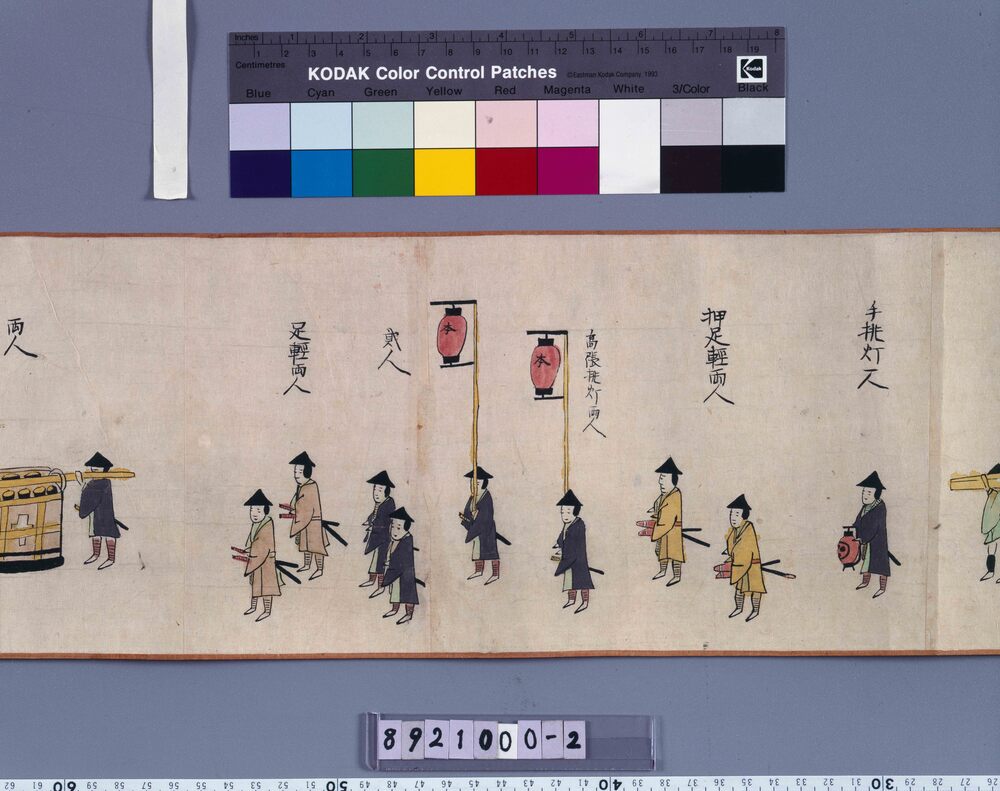 Inches 1 2 3 4 5 6 7 8
Centimetres 1 2 3 4 5 6 7 8 9 10 11 12 13 14 15 16 17 18 19
KODAK Color Control Patches
©Eastman Kodak Company, 1993
Kodak
Blue Cyan Green Yellow Red Magenta White 3/Color Black
手挑灯一人
押足軽両人
高張挑灯両人
本
本
弐人
足軽両人
両人
8921000-2
62 61 60 59 58 57 56 55 54 53 52 51 50 49 48 47 46 45 44 43 42 41 40 39 38 37 36 35 34 33 32 31 30 29 28 27 26